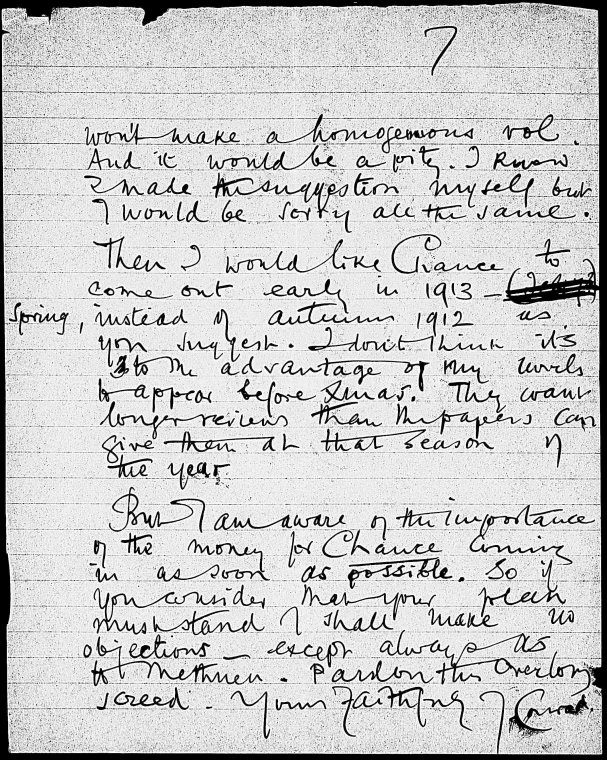 7
won't make a homogenous vol.
And it would be a pity. I know
I made the suggestion myself but
I would be sorry all the same.
Then I would like Chance to
come out early in 1913 —
Spring, instead of autumn 1912 as
you suggest. I don't think it's
to the advantage of my works
to appear before Xmas. They want
longer reviews than the papers can
give them at that season of
the year.
But I am aware of the importance
of the money for Chance coming
in as soon as possible. So if
you consider that your plan
must stand I shall make no
objections — except always as
to Methuen. Pardon this overlong
screed. Yours faithfully J Conrad.